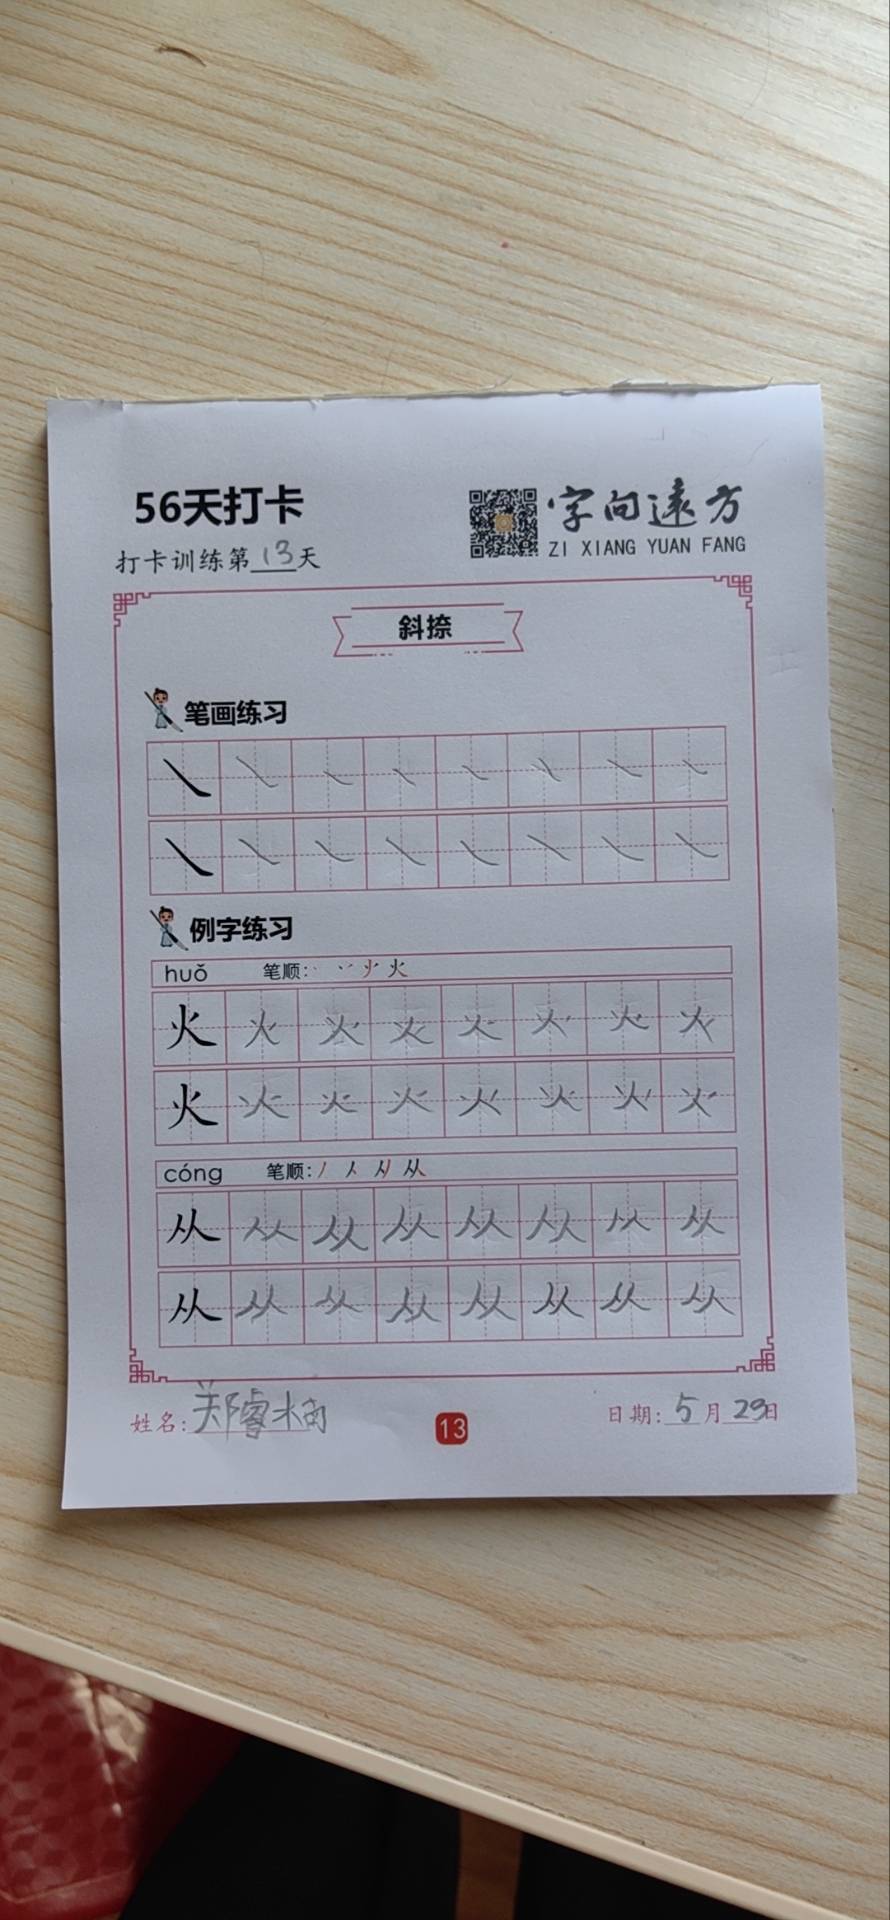 56天打卡
字向遠方
打卡训练第13天
ZI XIANG YUAN FANG
斜捺
笔画练习
例字练习
huǒ 笔顺: 火
火 火 火 火 火 火 火 火
火 火 火 火 火 火 火 火
cóng 笔顺: 从
从 从 从 从 从 从 从 从
从 从 从 从 从 从 从 从
姓名: 郑睿楠
13
日期: 5月29日